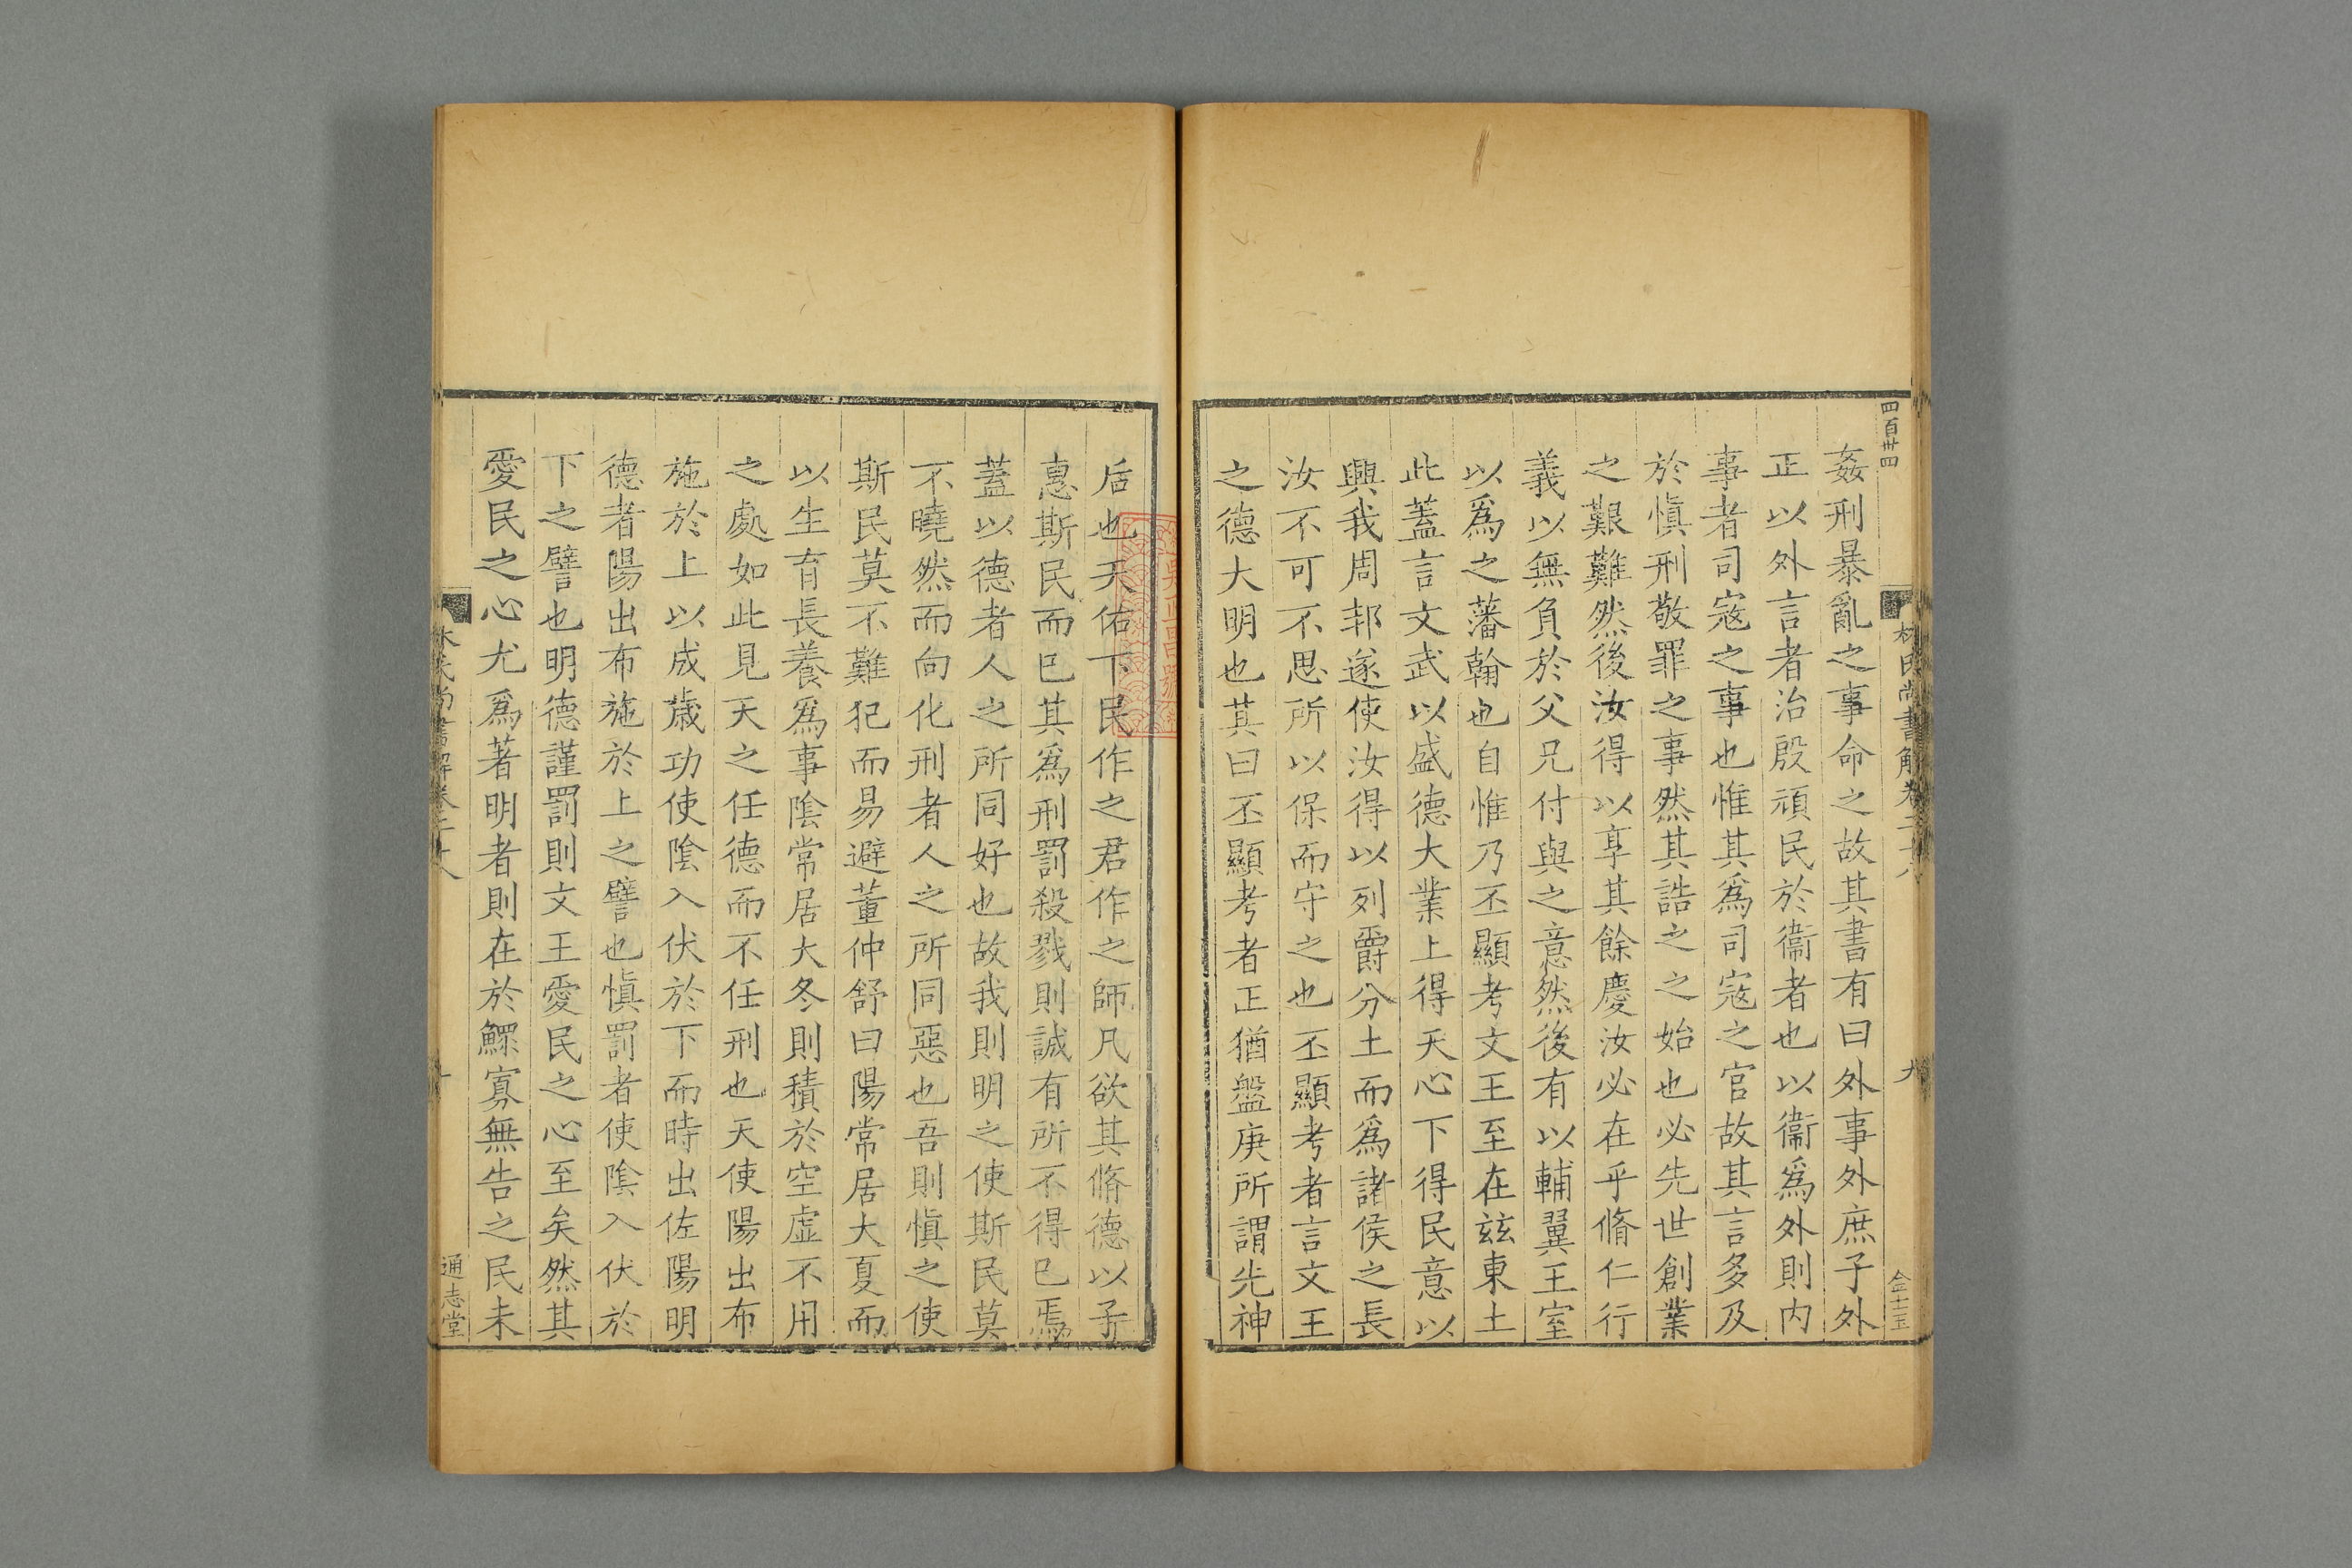 四百卅四
林氏尚書解卷二十八
九
金士玉
姦刑暴亂之事命之故其書有曰外事外庶子外
正以外言者治殷頑民於衞者也以衞爲外則内
事者司寇之事也惟其爲司寇之官故其言多及
於愼刑敬罪之事然其誥之之始也必先世創業
之艱難然後汝得以享其餘慶汝必在乎脩仁行
義以無負於父兄付與之意然後有以輔翼王室
以爲之藩翰也自惟乃丕顯考文王至在兹東土
此蓋言文武以盛德大業上得天心下得民意以
興我周邦遂使汝得以列爵分土而爲諸侯之長
汝不可不思所以保而守之也丕顯考者言文王
之德大明也其曰丕顯考者正猶盤庚所謂先神
后也天佑下民作之君作之師凡欲其脩德以子
惠斯民而已其爲刑罰殺戮則誠有所不得已焉
蓋以德者人之所同好也故我則明之使斯民莫
不曉然而向化刑者人之所同惡也吾則愼之使
斯民莫不難犯而易避董仲舒曰陽常居大夏而
以生育長養爲事陰常居大冬則積於空虛不用
之處如此見天之任德而不任刑也天使陽出布
施於上以成歲功使陰入伏於下而時出佐陽明
德者陽出布施於上之譬也愼罰者使陰入伏於
下之譬也明德謹罰則文王愛民之心至矣然其
愛民之心尤爲著明者則在於鰥寡無告之民未
林氏尚書解卷二十八
十
通志堂